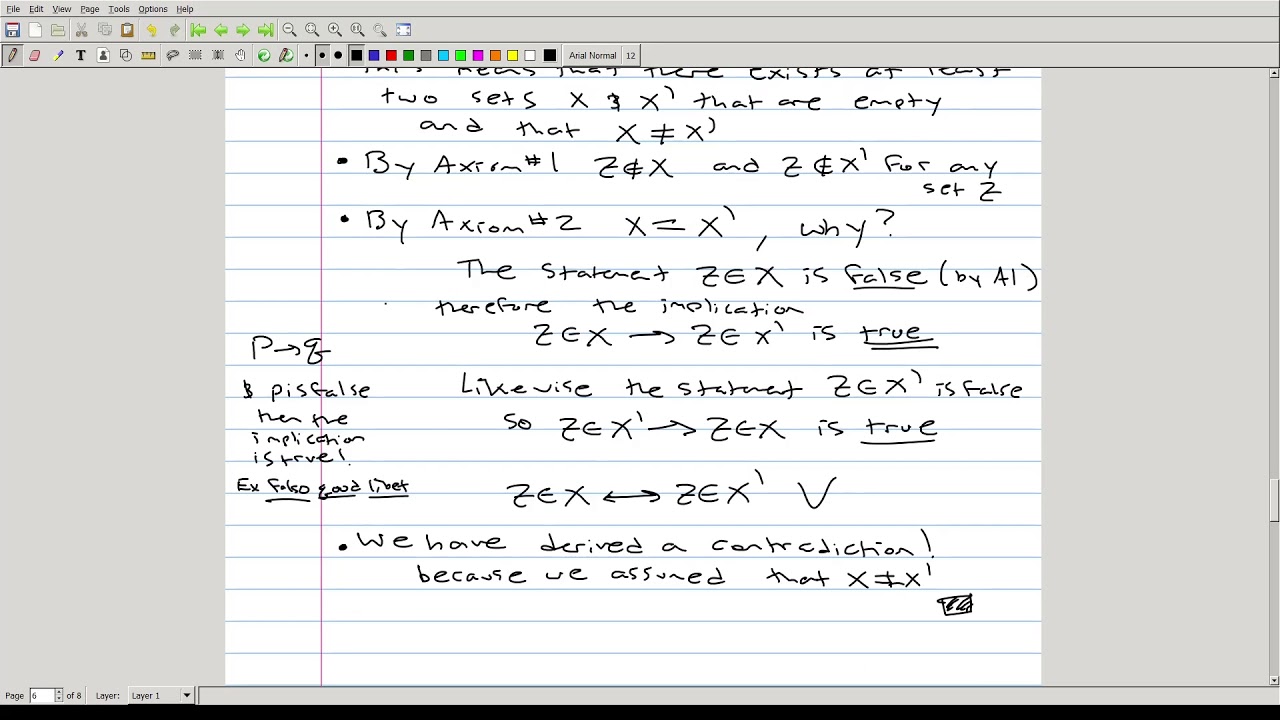 File Edit View Page Tools Options Help
Arial Normal 12
This means that there exists at least
two sets X & X' that are empty
and that X ≠ X'
• By Axiom #1 Z∉X and Z∉X' for any
set Z
• By Axiom #2 X = X', why?
The statement Z∈X is false (by A1)
therefore the implication
Z∈X → Z∈X' is true
P→q
& p is false
then the
implication
is true!
Ex falso quod libet
Likewise the statement Z∈X' is false
so Z∈X' → Z∈X is true
Z∈X ↔ Z∈X' √
• We have derived a contradiction!
because we assumed that X≠X'
Page 6 of 8 Layer: Layer 1